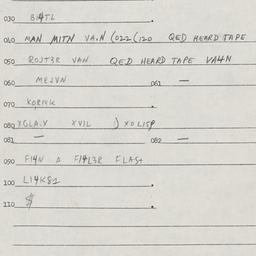 030 BI4TL
040 MAN MITN VA.N (022(120 QED HEARD TAPE
050 ROJT3R VAN QED HEARD TAPE VA4N
060 MEJVN 061 —
070 KORI4K
080 XGLA.Y XVIL ) XOLISP
081 — 082 —
090 FI4N A FI4L3R FLAS+
100 LI4KS2
110 $